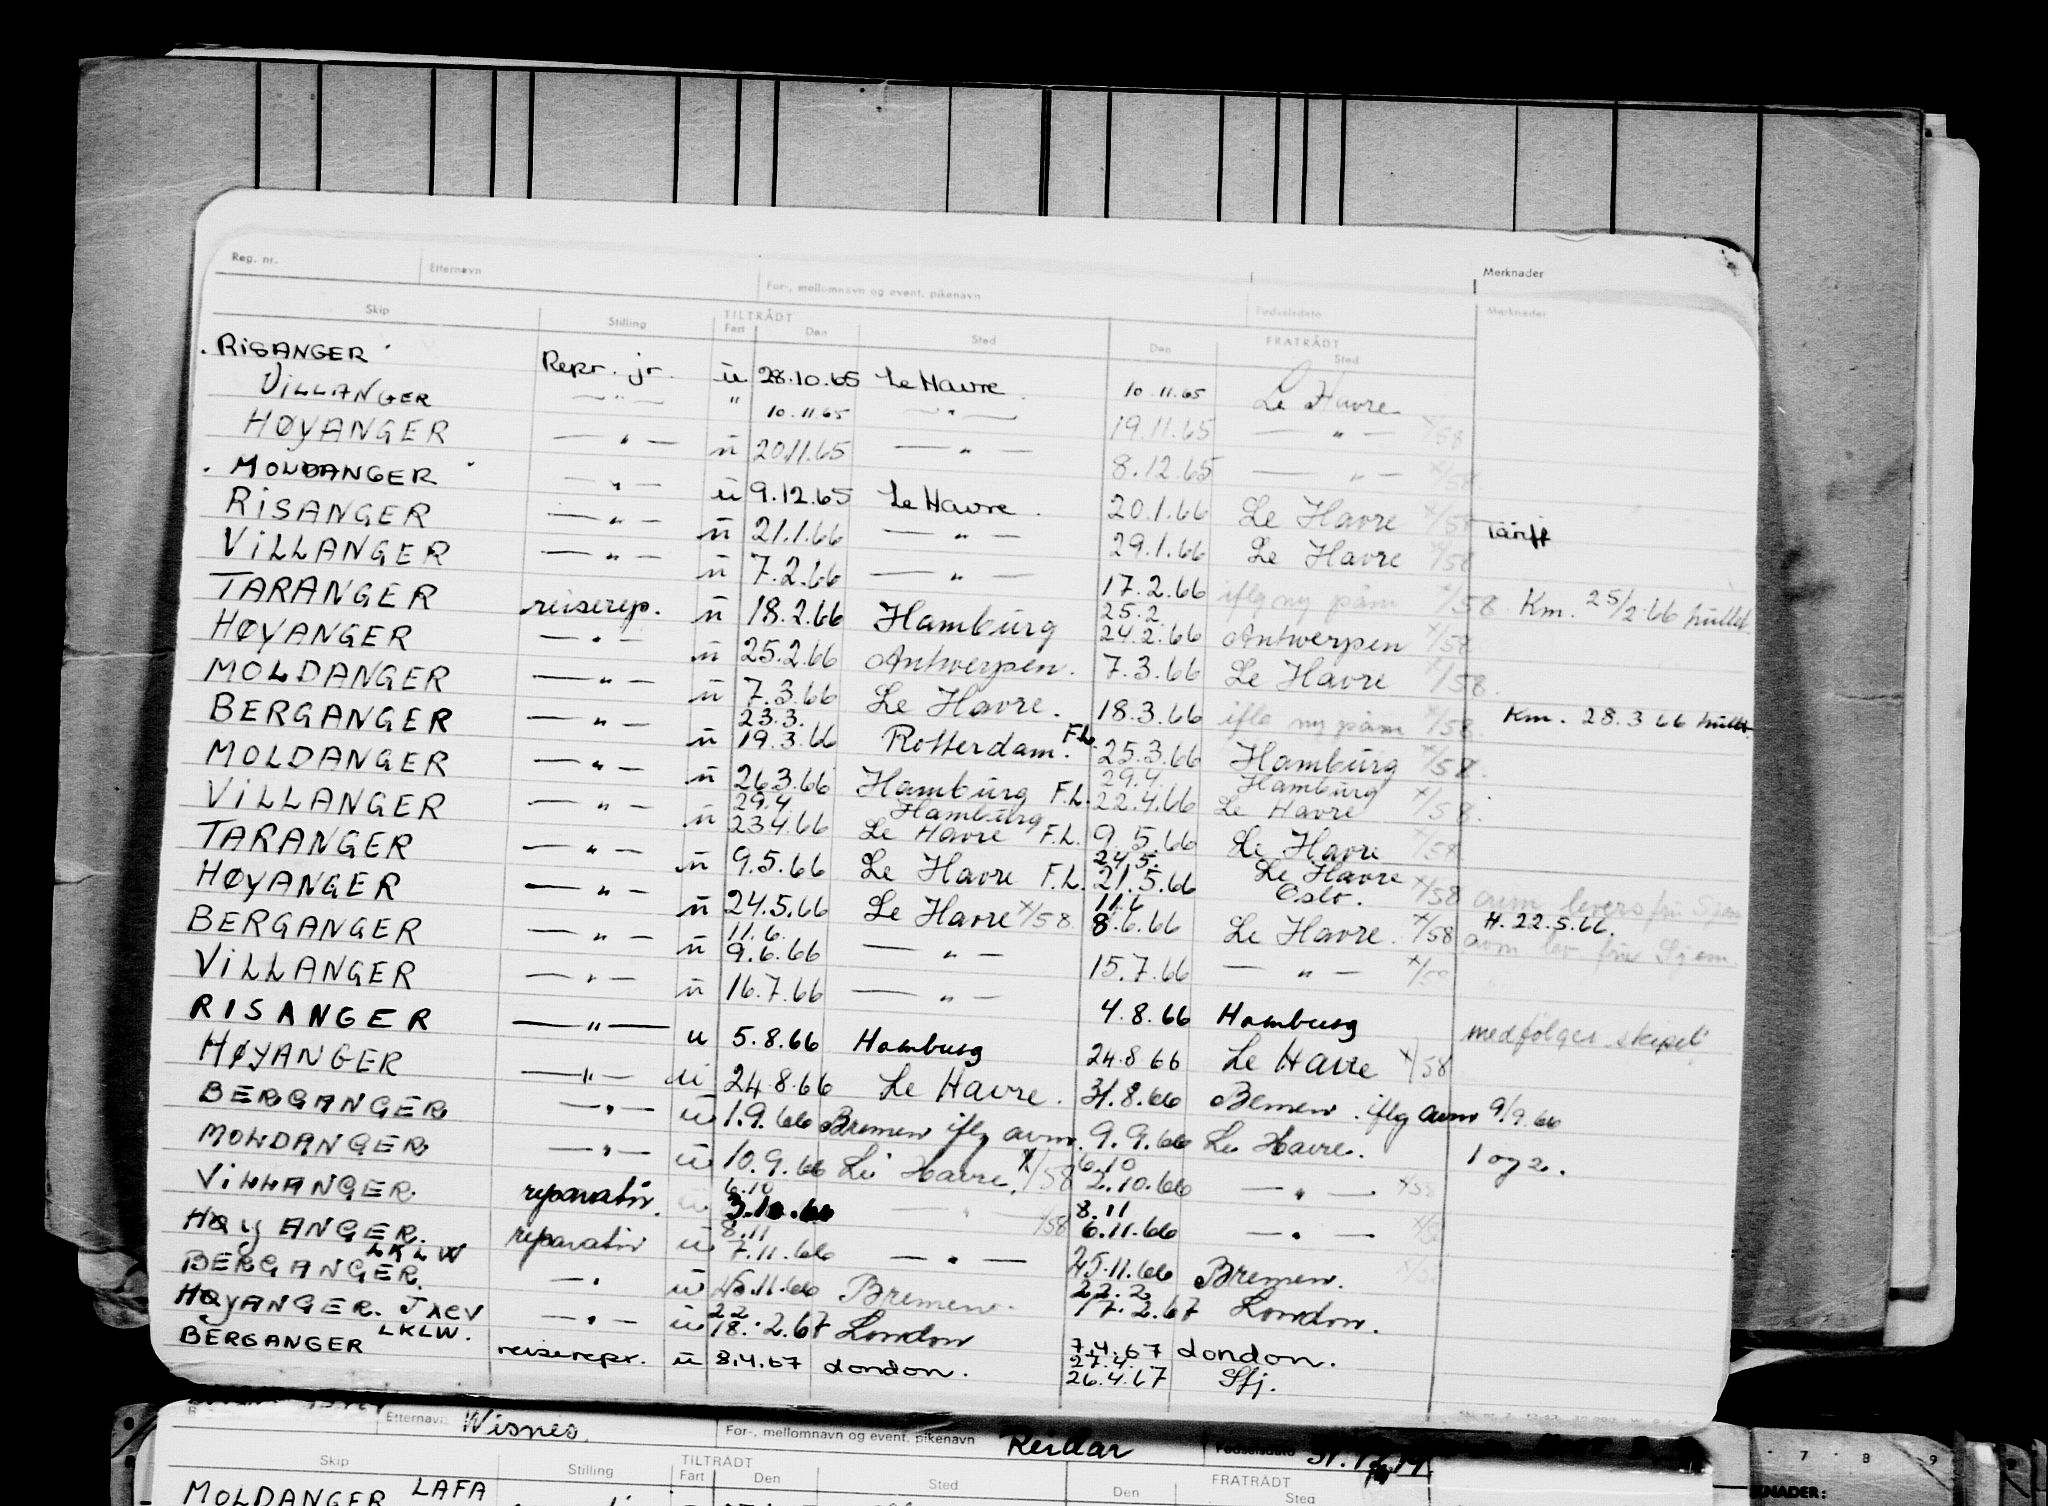 Reg. nr. Etternavn For-, mellomnavn og event. pikenavn Fødselsdato Merknader
Skip Stilling TILTRÅDT Fart Den Sted FRATRÅDT Den Sted Merknader
RISANGER Repr. jr. u 28.10.65 Le Havre 10.11.65 Le Havre
VILLANGER — " — " 10.11.65 — " — 19.11.65 — " — x/58
HØYANGER — " — u 20.11.65 — " — 8.12.65 — " — x/58
MOLDANGER — " — u 9.12.65 Le Havre 20.1.66 Le Havre x/58 Tariff
RISANGER — " — u 21.1.66 — " — 29.1.66 Le Havre x/58
VILLANGER — " — u 7.2.66 — " — 17.2.66 iflg ny påm x/58 Km. 25/2 66 hullet
TARANGER reiserep. u 18.2.66 Hamburg 25.2. 24.2.66 Antwerpen x/58
HØYANGER — " — u 25.2.66 Antwerpen. 7.3.66 Le Havre x/58.
MOLDANGER — " — u 7.3.66 Le Havre. 18.3.66 iflg ny påm x/58. Km. 28.3 66 hullet
BERGANGER — " — u 23.3. 19.3.66 Rotterdam. F.L. 25.3.66 Hamburg x/58.
MOLDANGER — " — u 26.3.66 Hamburg F.L. 29.4. 22.4.66 Hamburg Le Havre x/58.
VILLANGER — " — u 29.4 23.4.66 Hamburg Le Havre F.L. 9.5.66 Le Havre x/58
TARANGER — " — u 9.5.66 Le Havre F.L. 24.5. 21.5.66 Le Havre Oslo. x/58 avm levers fra
HØYANGER — " — u 24.5.66 Le Havre x/58 11.6 8.6.66 Le Havre. x/58 H. 22.5.66. avm. lev fra
BERGANGER — " — u 11.6. 9.6.66 — " — 15.7.66 — " — x/58
VILLANGER — " — u 16.7.66 — " — 4.8.66 Hamburg medfølger skipet
RISANGER — " — u 5.8.66 Hamburg 24.8 66 Le Havre x/58
HØYANGER — " — u 24.8.66 Le Havre. 31.8.66 Bemen. iflg avm 9/9.66
BERGANGER — " — u 1.9.66 Bremen iflg avm. 9.9.66 Le Havre. 1 og 2.
MOLDANGER — " — u 10.9.66 Le Havre. x/58 6.10 2.10.66 — " — x/58
VILLANGER reparatør. u 6.10 3.10.66 — " — x/58 8.11 6.11.66 — " —
HØYANGER. reparatør u 8.11 7.11.66 — " — 25.11.66 Bremen.
BERGANGER. LKLW — " u 25.11.66 Bremen. 22.2 17.2.67 London.
HØYANGER. JXCV — " — u 22 18.2.67 London 7.4.67 London.
BERGANGER LKLW. reiserepr. u 8.4.67 London. 27.4. 26.4.67 Sfj.
Etternavn Wisnes For-, mellomnavn og event. pikenavn Reidar Fødselsdato
Skip Stilling TILTRÅDT Fart Den Sted FRATRÅDT Den Sted
MOLDANGER LAFA
7 8 9